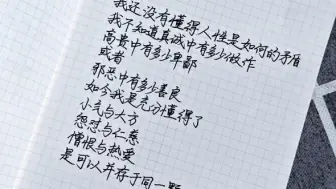 我还没有懂得人性是如何的矛盾
我不知道真诚中有多少做作
高贵中有多少卑鄙
或者
邪恶中有多少善良
如今我是充分懂得了
小气与大方
怨怼与仁慈
憎恨与热爱
是可以并存于同一颗